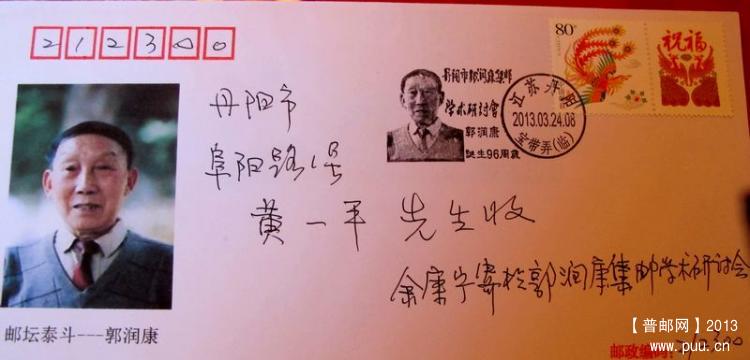 212300
80分
祝福
丹阳市郭润康集邮
学术研讨会
郭润康
诞生96周年
江苏丹阳
2013.03.24.08
宝带弄(临)
丹阳市
阜阳路1号
黄一平 先生收
余康宁寄于郭润康集邮学术研讨会
邮坛泰斗---郭润康
邮政编码:
212300
【普邮网】2013
www.puu.cn